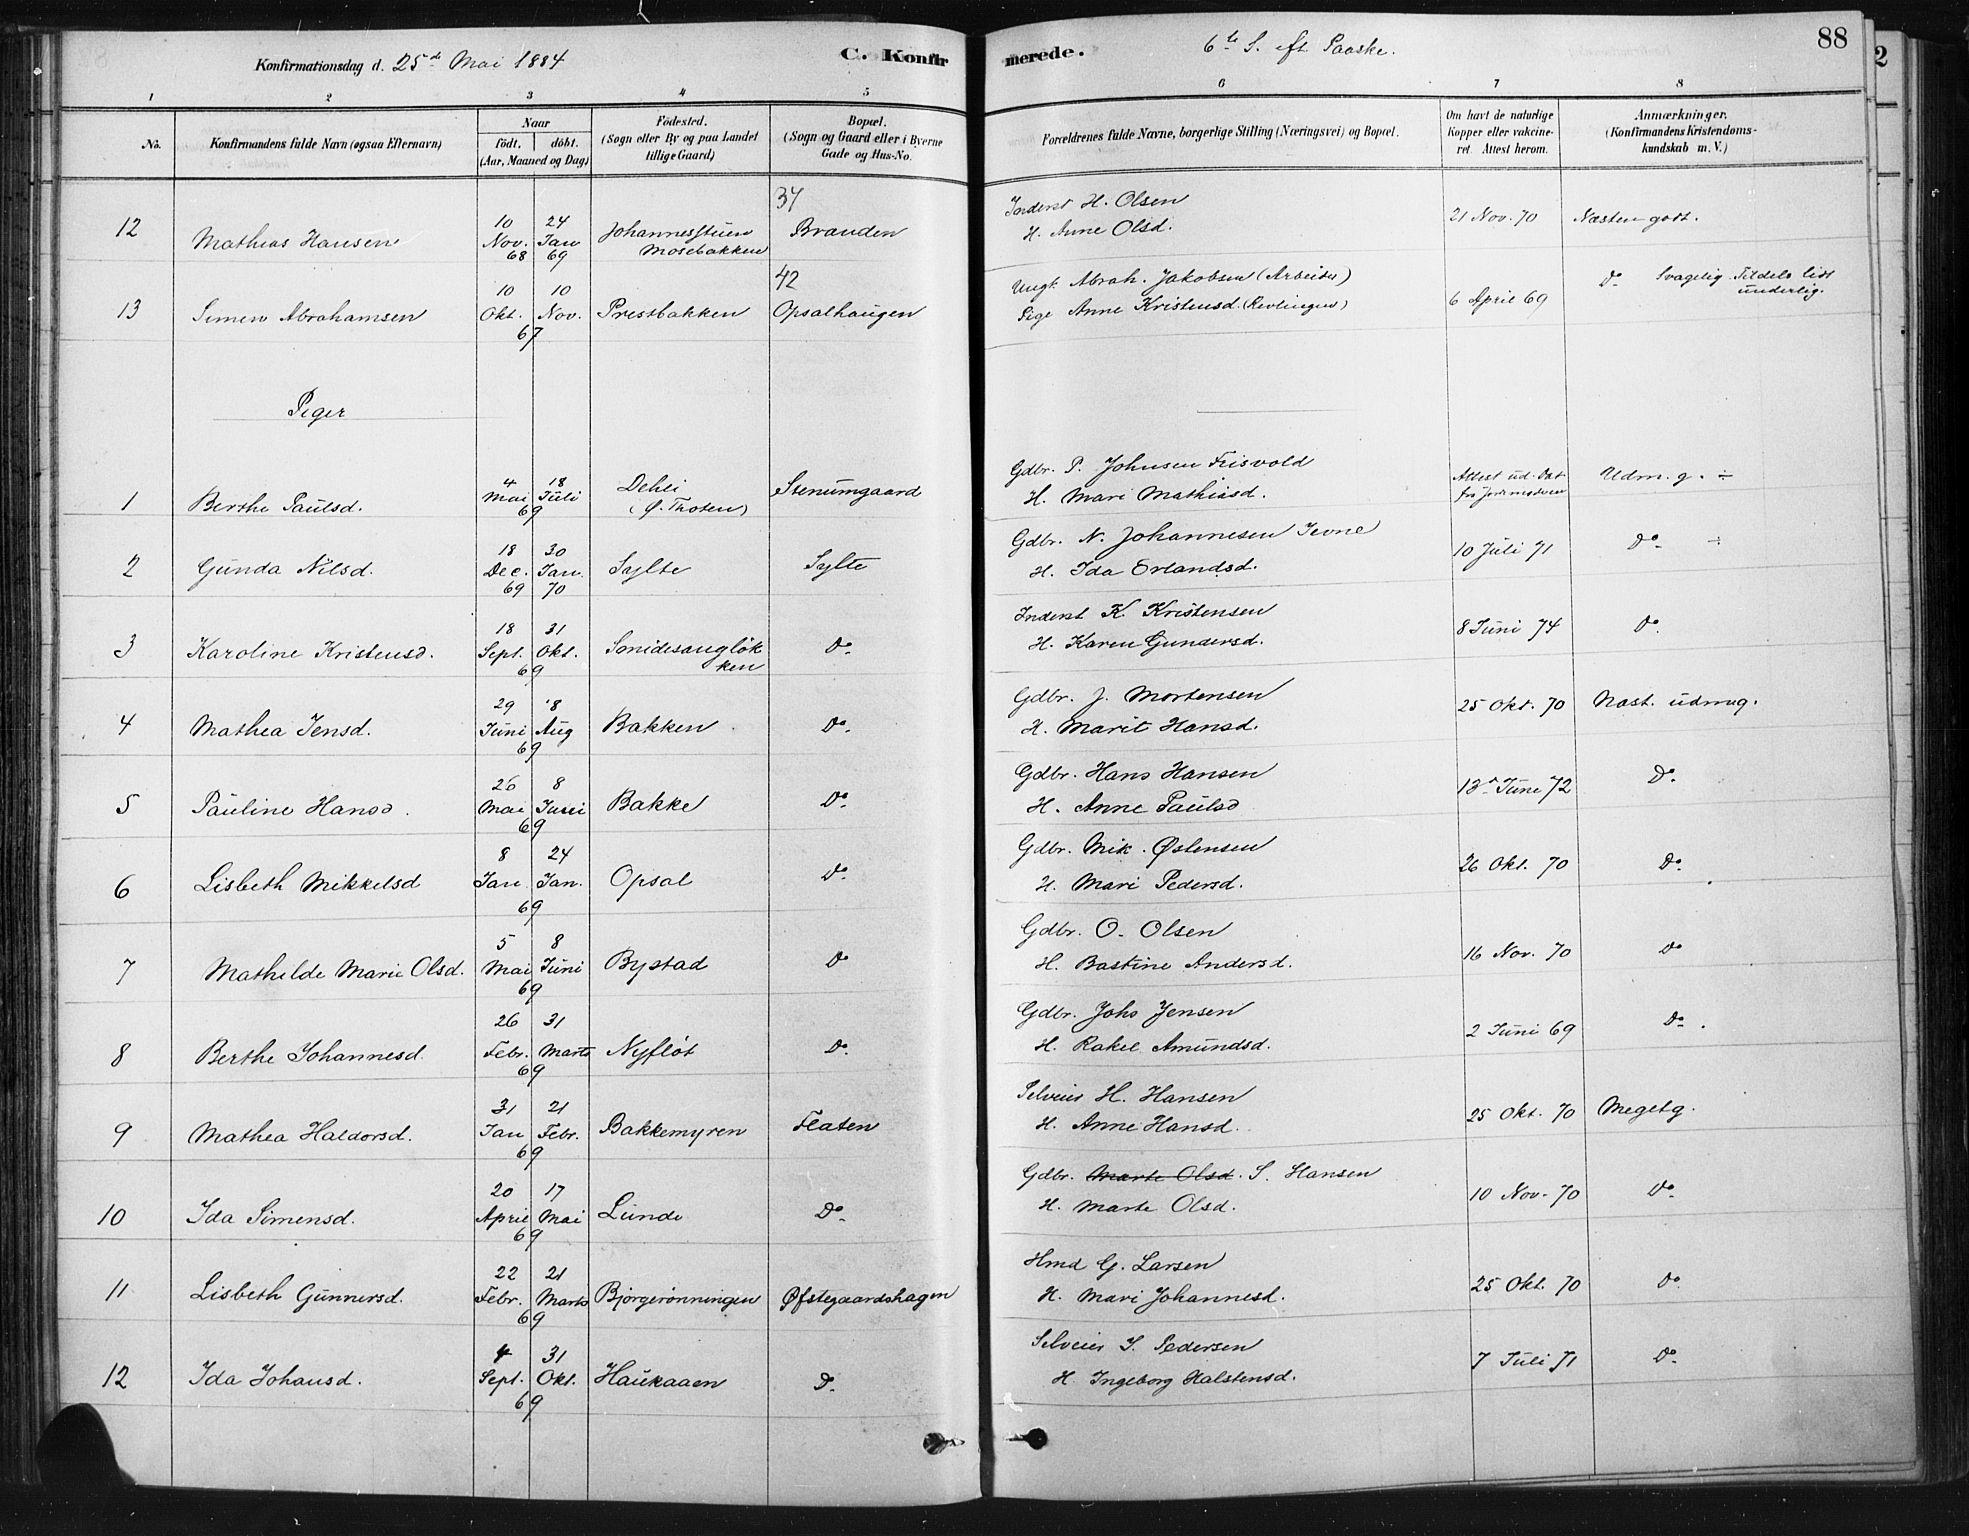 88
Konfirmationsdag d. 25de Mai 1884
C. Konfirmerede.
6te S. eft. Paaske.
1 2 3 4 5 6 7 8
No.
Konfirmandens fulde Navn (ogsaa Efternavn)
Naar
födt. döbt.
(Aar, Maaned og Dag)
Födested.
(Sogn eller By og paa Landet
tillige Gaard)
Bopæl.
(Sogn og Gaard eller i Byerne
Gade og Hus-No.
Forældrenes fulde Navne, borgerlige Stilling (Næringsvei) og Bopæl.
Om havt de naturlige
Kopper eller vakcine-
ret. Attest herom.
Anmærkninger.
(Konfirmandens Kristendoms-
kundskab m. V.)
12 Mathias Hansen 10 Nov. 68 24 Jan 69 Johannesstuen Mosebakken 34 Branden Inderst H. Olsen H. Anne Olsd. 21 Nov. 70 Næsten godt.
13 Simen Abrahamsen 10 Okt. 10 Nov. 67 Prestbakken 42 Opsalhaugen Ungk. Abrah. Jakobsen (Arbeider) Pige Anne Kristensd. (Revlingen) 6 April 69 Do Svagelig. Tildels lidt underlig.
Piger
1 Berthe Paulsd. 4 Mai 18 Juli 69 Dehli (Ø. Thoten) Stenumgaard Gdbr. P. Johnsen Frisvold H. Mari Mathiasd. Attest ud. Dat. Udm. g. ÷
2 Gunda Nilsd. 18 Dec. 69 30 Jan. 70 Sylte Sylte Gdbr. N. Johannesen Jevne H. Ida Erlandsd. 10 Juli 71 Do ÷
3 Karoline Kristensd. 18 Sept. 31 Okt. 69 Smidesangløkken Do Inderst K. Kristensen H. Karen Gundersd. 8 Juni 74 Do
4 Mathea Jensd. 29 Juni 8 Aug 69 Bakken Do Gdbr. J. Mortensen H. Marit Hansd. 25 Okt. 70 Næst. udm.g.
5 Pauline Hansd. 26 Mai 8 Juni 69 Bakke Do Gdbr. Hans Hansen H. Anne Paulsd 13 Juni 72 Do
6 Lisbeth Mikkelsd 8 Jan 24 Jan. 69 Opsal Do Gdbr. Mik. Østensen H. Mari Pedersd. 26 Okt. 70 Do
7 Mathilde Marie Olsd. 5 Mai 8 Juni 69 Bystad Do Gdbr. O. Olsen H. Bastine Andersd. 16 Nov. 70 Do
8 Berthe Johannesd. 26 Febr. 31 Marts 69 Nyfløt Do Gdbr. Johs Jensen H. Rakel Amundsd. 2 Juni 69 Do
9 Mathea Haldorsd. 31 Jan 21 Febr. 69 Bakkemyren Flaten Selveier H. Hansen H. Anne Hansd. 25 Okt. 70 Megetg.
10 Ida Simensd. 20 April 17 Mai 69 Lunde Do Gdbr. Marte Olsd. S. Hansen H. Marte Olsd. 10 Nov. 70 Do
11 Lisbeth Gunnersd. 22 Febr. 21 Marts 69 Bjørgerønningen Øfstegaardshagen Hmd G. Larsen H. Mari Johannesd. 25 Okt. 70 Do
12 Ida Johansd. 4 Sept. 31 Okt. 69 Haukaaen Do Selveier J. Pedersen H. Ingeborg Halstensd. 7 Juli 71 Do